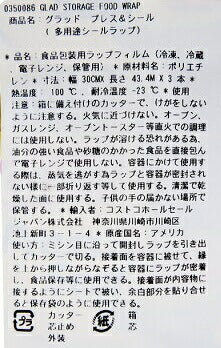 0350086 GLAD STORAGE FOOD WRAP
* 商品名：グラッド プレス&シール
（多用途シールラップ）
* 品名：食品包装用ラップフィルム（冷凍、冷蔵
、電子レンジ、保管用）* 原材料名：ポリエチ
レン * 寸法：幅 30CMX 長さ 43.4M X 3 本 *
耐熱温度：100℃、耐冷温度 -23℃ * 使用上の
注意：箱に備え付けのカッターで、けがをしない
ように注意する。火気に近づけない。オーブン、
ガスレンジ、オーブントースター等直火での調理
には使用しない。ラップが溶ける恐れがある為、
油分の強い食品や砂糖のかかった食品を直接包ん
で電子レンジで使用しない。容器にかけて使用す
る際は、蒸気を逃がす為ラップと容器が密封され
ない様に一部折り返す等して使用する。清潔で乾
燥した面に使用する。子供の手の届かない場所で
保管する。* 輸入者：コストコホールセール
ジャパン株式会社 神奈川県川崎市川崎区
池上新町 3-1-4 * 原産国：アメリカ
使い方：ミシン目に沿って開封しラップを引き出
してカッターで切る。接着面を容器に被せて、縁
を上から押しながらぞると容器にラップが密着
し、食品保存等に使用できる。接着面が内容物に
接するようにシートで被い、余白部分を貼り合わ
せると保存袋のように使用できる。
プラ カッター 紙 箱
芯止め 芯
外装